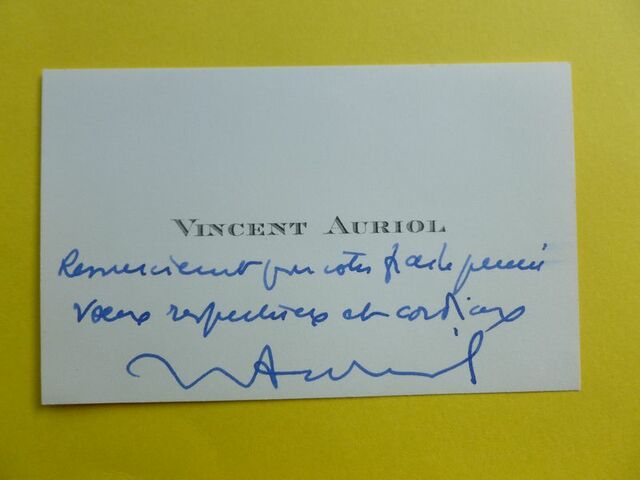 VINCENT AURIOL
Remerciement pour votre fidèle pensée
Vœux respectueux et cordiaux
V Auriol